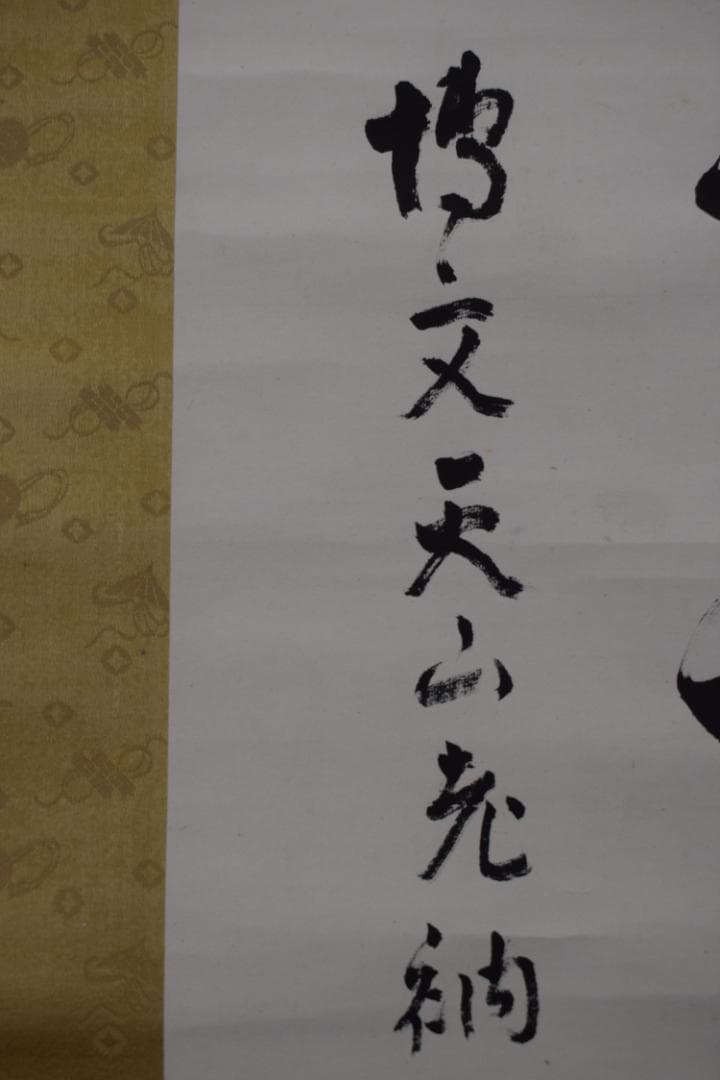 博文天山老衲